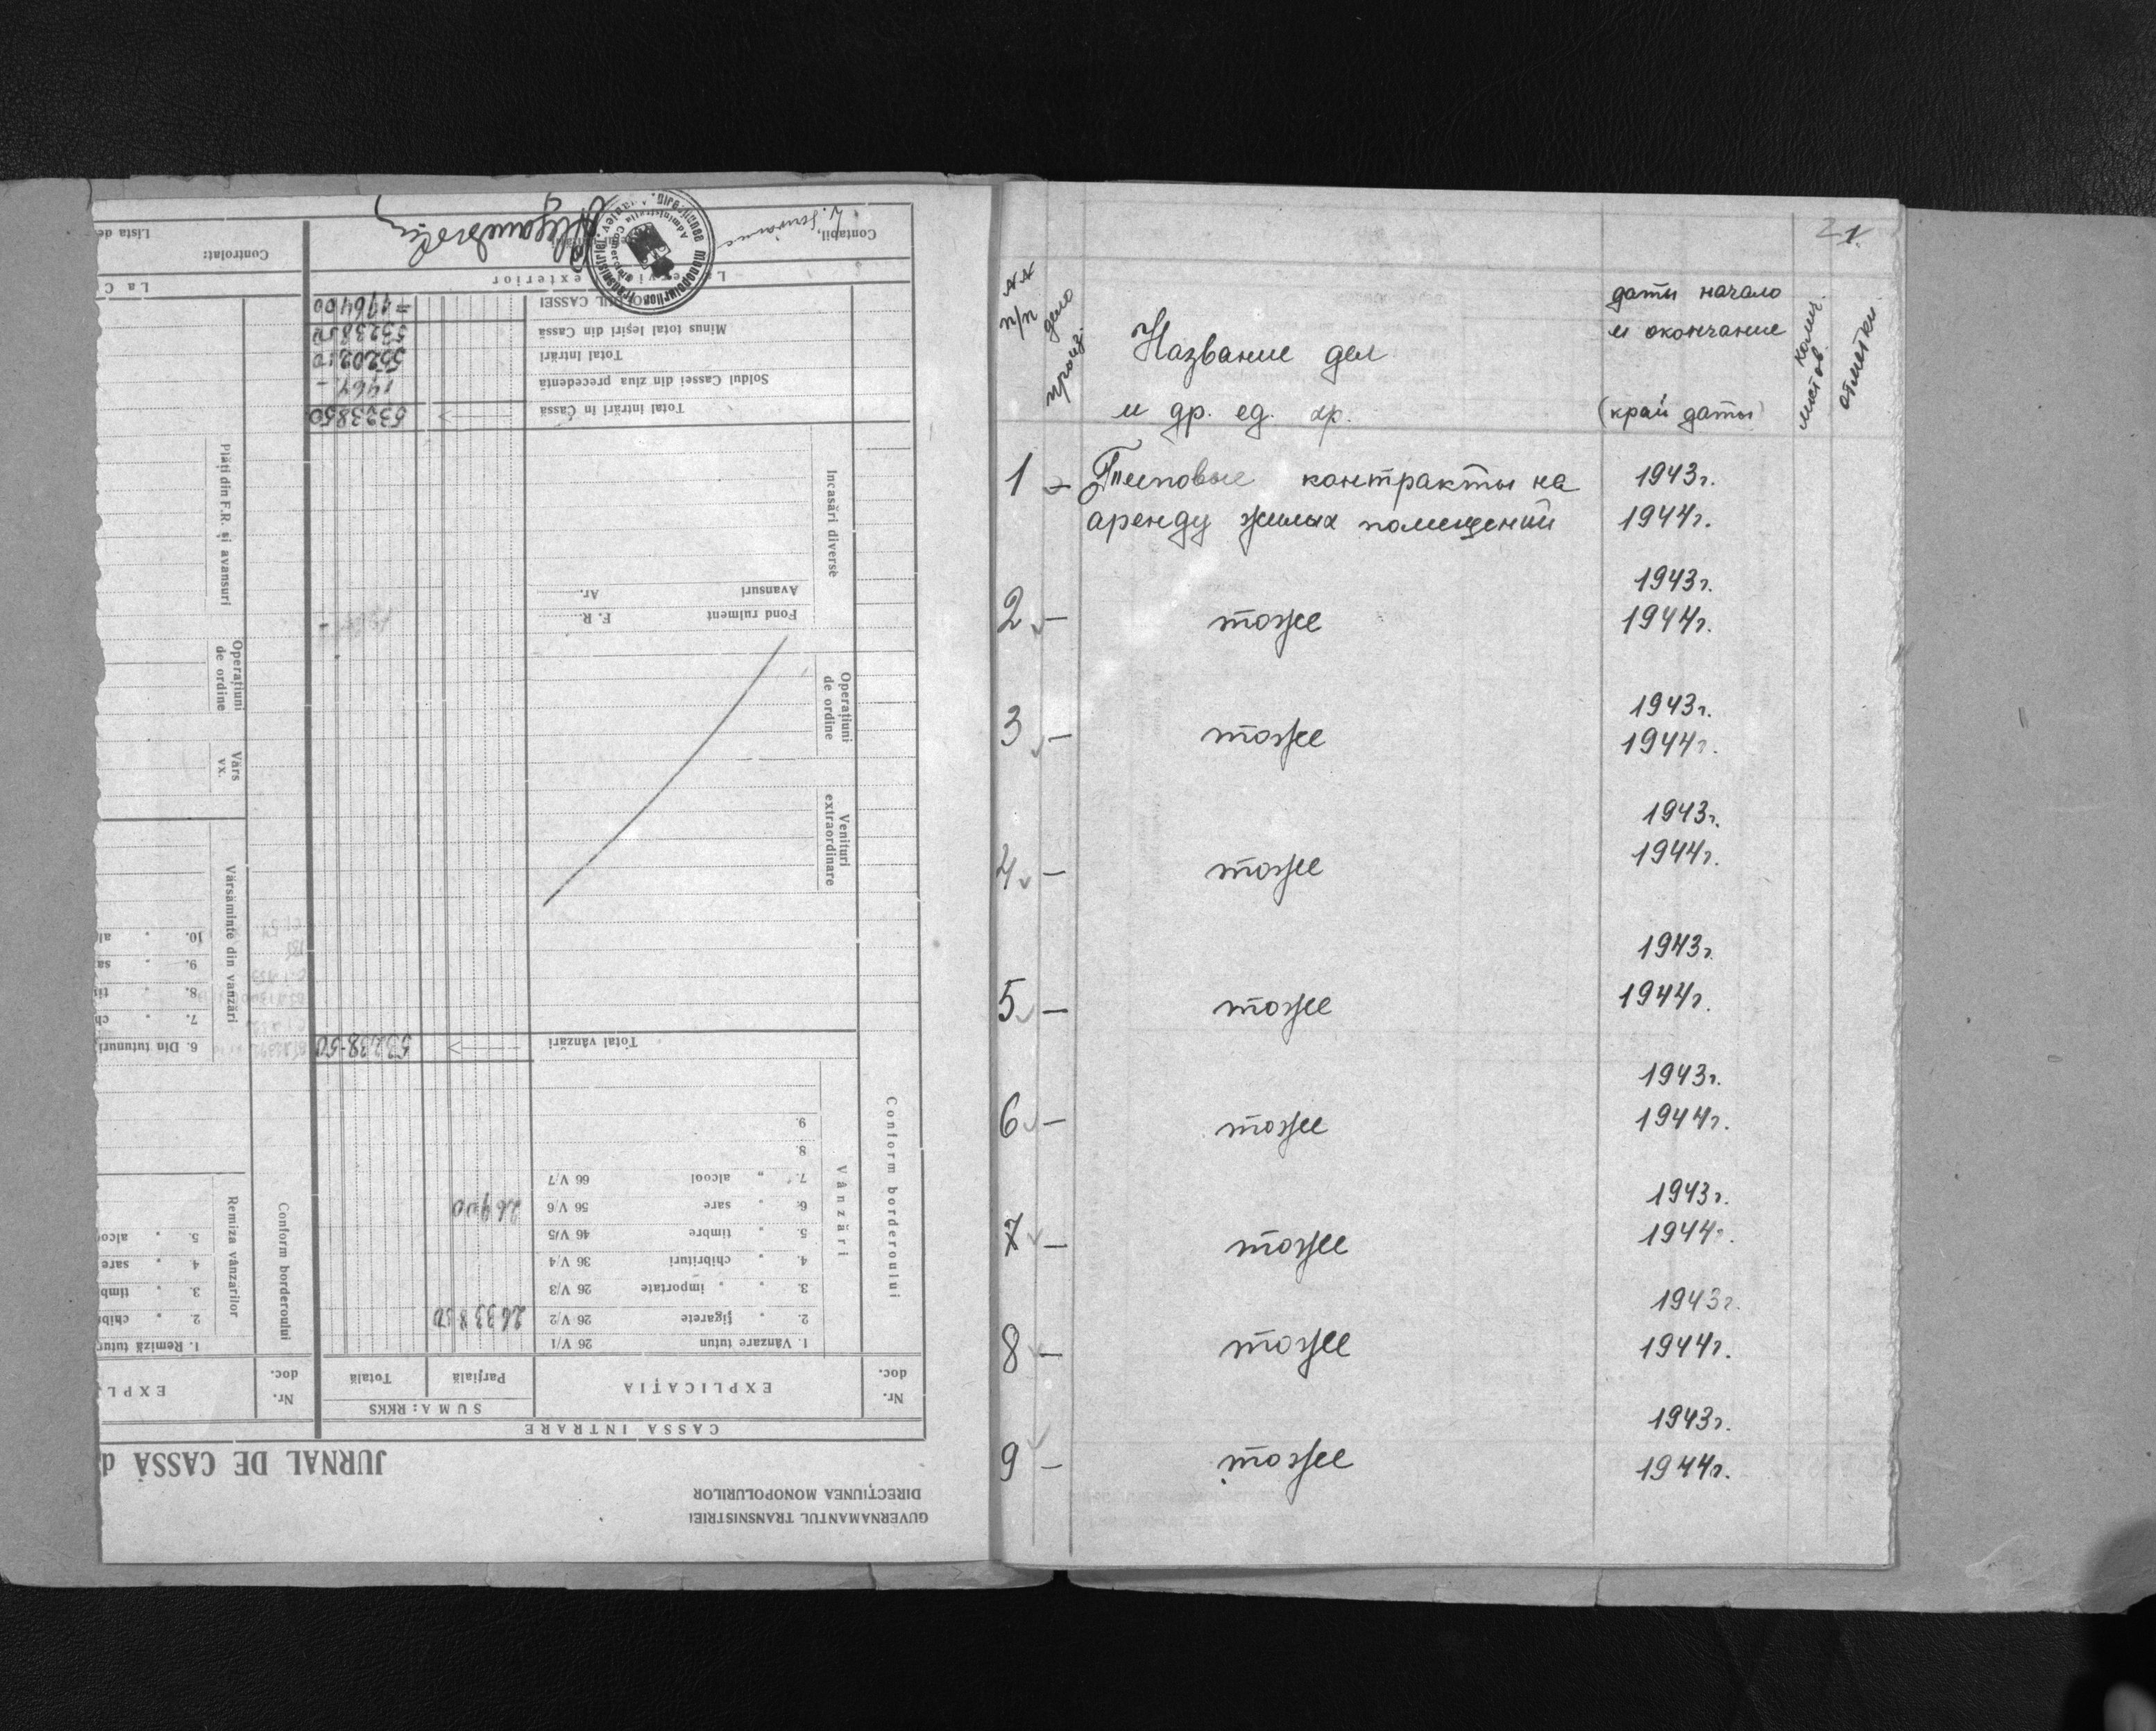 GUVERNAMANTUL TRANSNISTRIEI
DIRECȚIUNEA MONOPOLURILOR
JURNAL DE CASSĂ d
CASSA INTRARE
Nr. doc.
EXPLICAȚIA
SUMA: RKKS
Parțială
Totală
Conform borderoului
Vânzări
1. Vânzare tutun 26 V/1
2. " țigarete 26 V/2 2633850
3. " " importate 26 V/3
4. " chibrituri 36 V/4
5. " timbre 46 V/5
6. " sare 56 V/6 26900
7. " alcool 66 V/7
8.
9.
Total vânzări 53238-50
Venituri extraordinare
Operațiuni de ordine
Incasări diverse
Fond rulment F. R.
Avansuri Av.
Total intrări în Cassă 5323850
Soldul Cassei din ziua precedentă 1464 -
Total Intrări
Minus total Ieșiri din Cassă 5323850
CASSEI = 176400
exterior
Contabil,
Nr. doc.
EXPL
Conform borderoului
Remiza vânzarilor
1. Remiză tutun
2. " chibr
3. " timb
4. " sare
5. " alco
Vărsăminte din vanzări
6. Din tutunuri
7. " ch
8. " ti
9. " sa
10. " al
Vărs vx.
Operațiuni de ordine
Plăți din F.R. și avansuri
La C
Controlat:
Lista de
21.
NN п/п
дело произ.
Название дел
и др. ед. хр.
даты начало
и окончание
(край даты)
колич. листов.
отметки
1 - Типовые контракты на 1943г.
аренду жилых помещений 1944г.
1943г.
2 - тоже 1944г.
1943г.
3 - тоже 1944г.
1943г.
4 - тоже 1944г.
1943г.
5 - тоже 1944г.
1943г.
6 - тоже 1944г.
1943г.
7 - тоже 1944г.
1943г.
8 - тоже 1944г.
1943г.
9 - тоже 1944г.